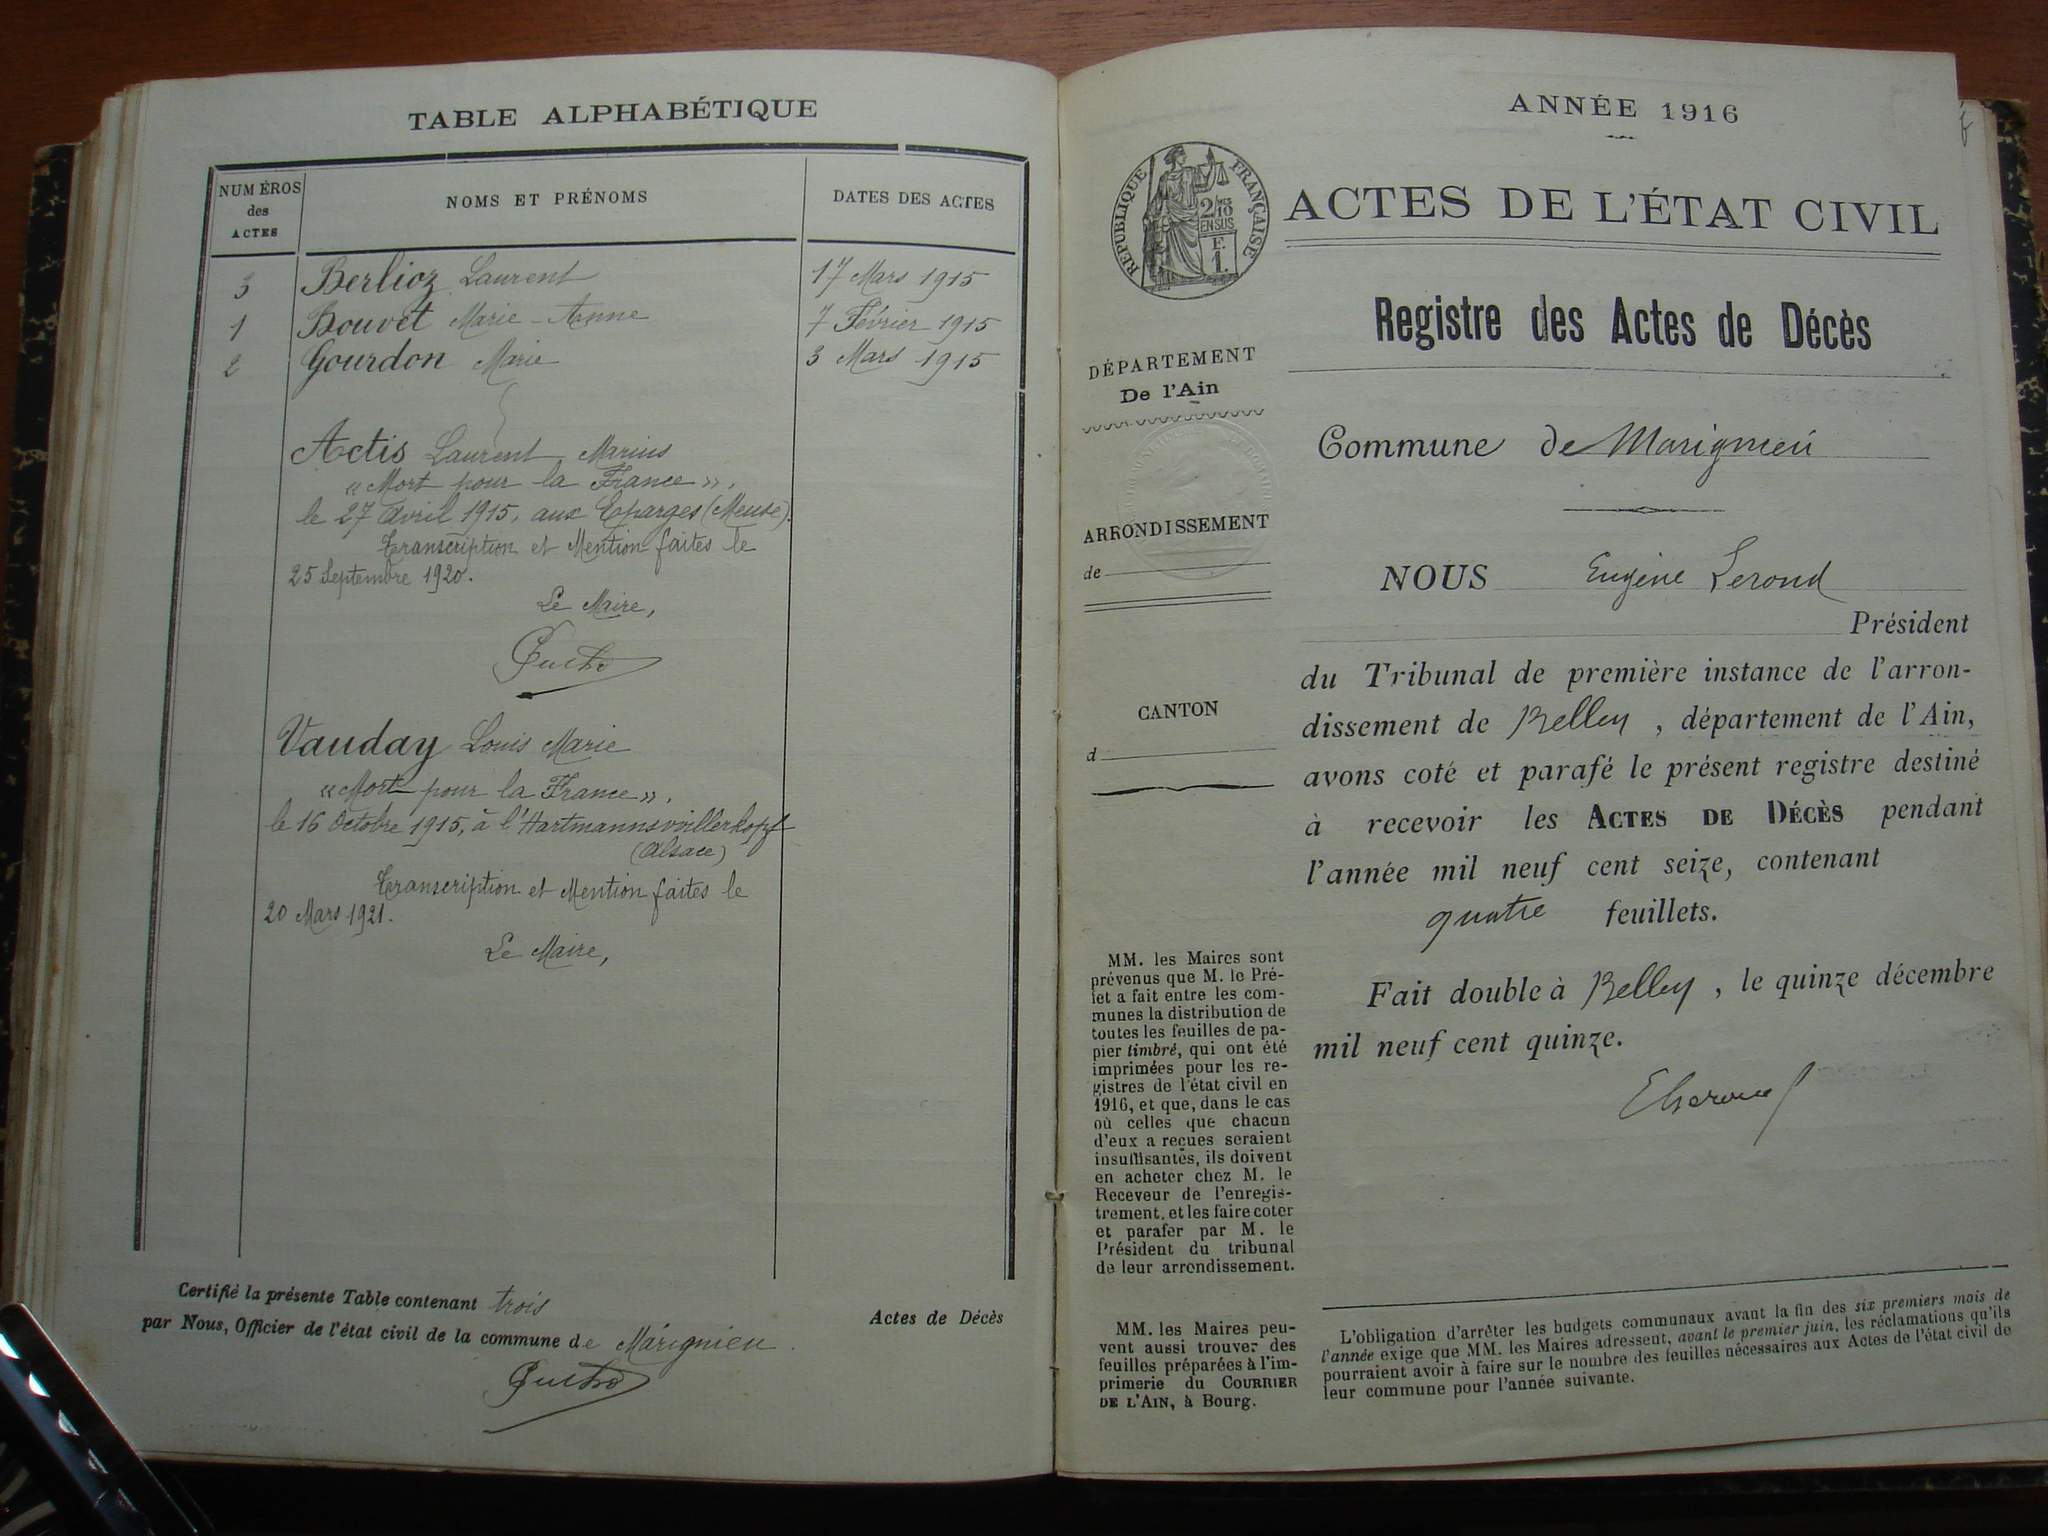 TABLE ALPHABÉTIQUE
NUMÉROS
des
ACTES
NOMS ET PRÉNOMS
DATES DES ACTES
3 Berlioz Laurent 17 Mars 1915
1 Bouvet Marie-Anne 7 Février 1915
2 Gourdon Marie 3 Mars 1915
Actis Laurent Marius
«Mort pour la France»,
le 27 Avril 1915, aux Eparges (Meuse).
Transcription et Mention faites le
25 Septembre 1920.
Le Maire,
Vauday Louis Marie
«Mort pour la France»,
le 16 Octobre 1915, à l'Hartmannsvillerkopf
(Alsace)
Transcription et Mention faites le
20 Mars 1921.
Le Maire,
Certifié la présente Table contenant trois Actes de Décès
par Nous, Officier de l'état civil de la commune de Marignieu.
ANNÉE 1916
RÉPUBLIQUE FRANÇAISE
2/10
EN SUS
F.
1.
ACTES DE L'ÉTAT CIVIL
Registre des Actes de Décès
DÉPARTEMENT
De l'Ain
ARRONDISSEMENT
de
CANTON
d
Commune de Marignieu
NOUS Eugène Lerond
Président
du Tribunal de première instance de l'arron-
dissement de Belley, département de l'Ain,
avons coté et parafé le présent registre destiné
à recevoir les ACTES DE DÉCÈS pendant
l'année mil neuf cent seize, contenant
quatre feuillets.
Fait double à Belley, le quinze décembre
mil neuf cent quinze.
MM. les Maires sont
prévenus que M. le Pré-
fet a fait entre les com-
munes la distribution de
toutes les feuilles de pa-
pier timbré, qui ont été
imprimées pour les re-
gistres de l'état civil en
1916, et que, dans le cas
où celles que chacun
d'eux a reçues seraient
insuffisantes, ils doivent
en acheter chez M. le
Receveur de l'enregis-
trement, et les faire coter
et parafer par M. le
Président du tribunal
de leur arrondissement.
MM. les Maires peu-
vent aussi trouver des
feuilles préparées à l'im-
primerie du COURRIER
DE L'AIN, à Bourg.
L'obligation d'arrêter les budgets communaux avant la fin des six premiers mois de
l'année exige que MM. les Maires adressent, avant le premier juin, les réclamations qu'ils
pourraient avoir à faire sur le nombre des feuilles nécessaires aux Actes de l'état civil de
leur commune pour l'année suivante.